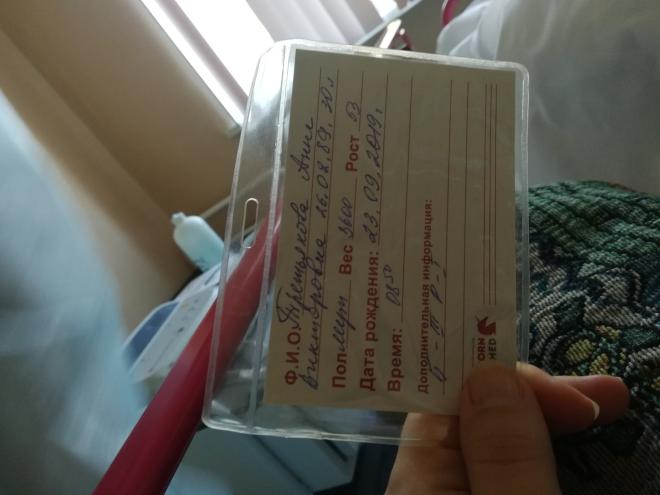 Ф.И.О. Третьякова Анна
Викторовна 26.08.89. 30 л
Пол Вес 3600 Рост 53
Дата рождения: 23.09.2019 г.
Время: 08 50
Дополнительная информация:
ORN
MED